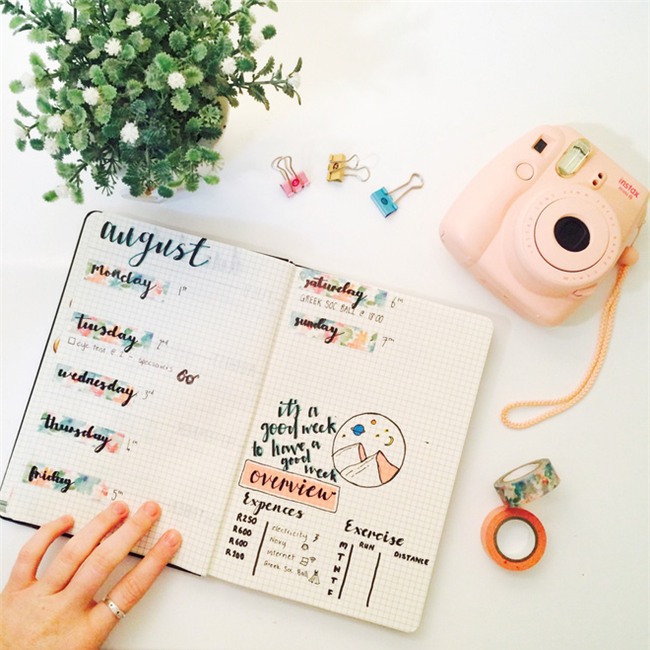 august
monday 1st
tuesday 2nd
eye test @ - specsavers
wednesday 3rd
thursday 4th
friday 5th
saturday 6th
GREEK SOC BALL @ 18:00
sunday 7th
it's a
good week
to have a
good
week
overview
Expences
R250 electricity
R600 Novy
R600 internet
R300 Greek Soc Ball
Exercise
RUN DISTANCE
M
T
W
T
F
instax
mini 8